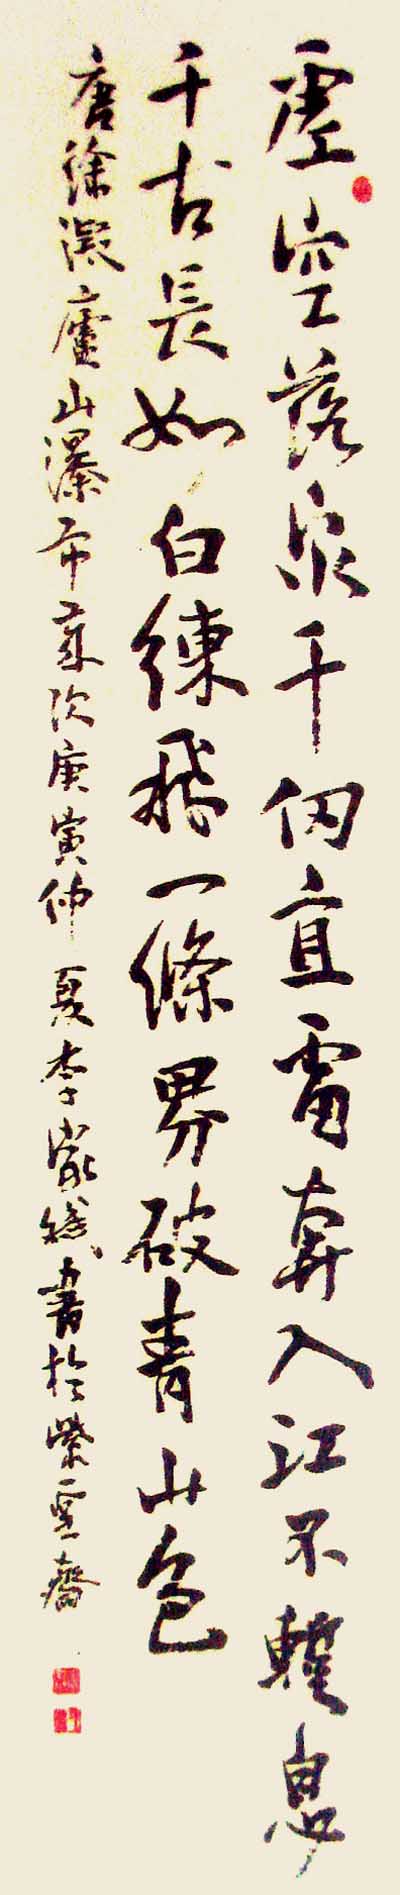 虚空落泉千仞直雷奔入江不暂息
千古長如白練飛一條界破青山色
唐徐凝廬山瀑布 歲次庚寅仲夏李家 書於紫雲齋